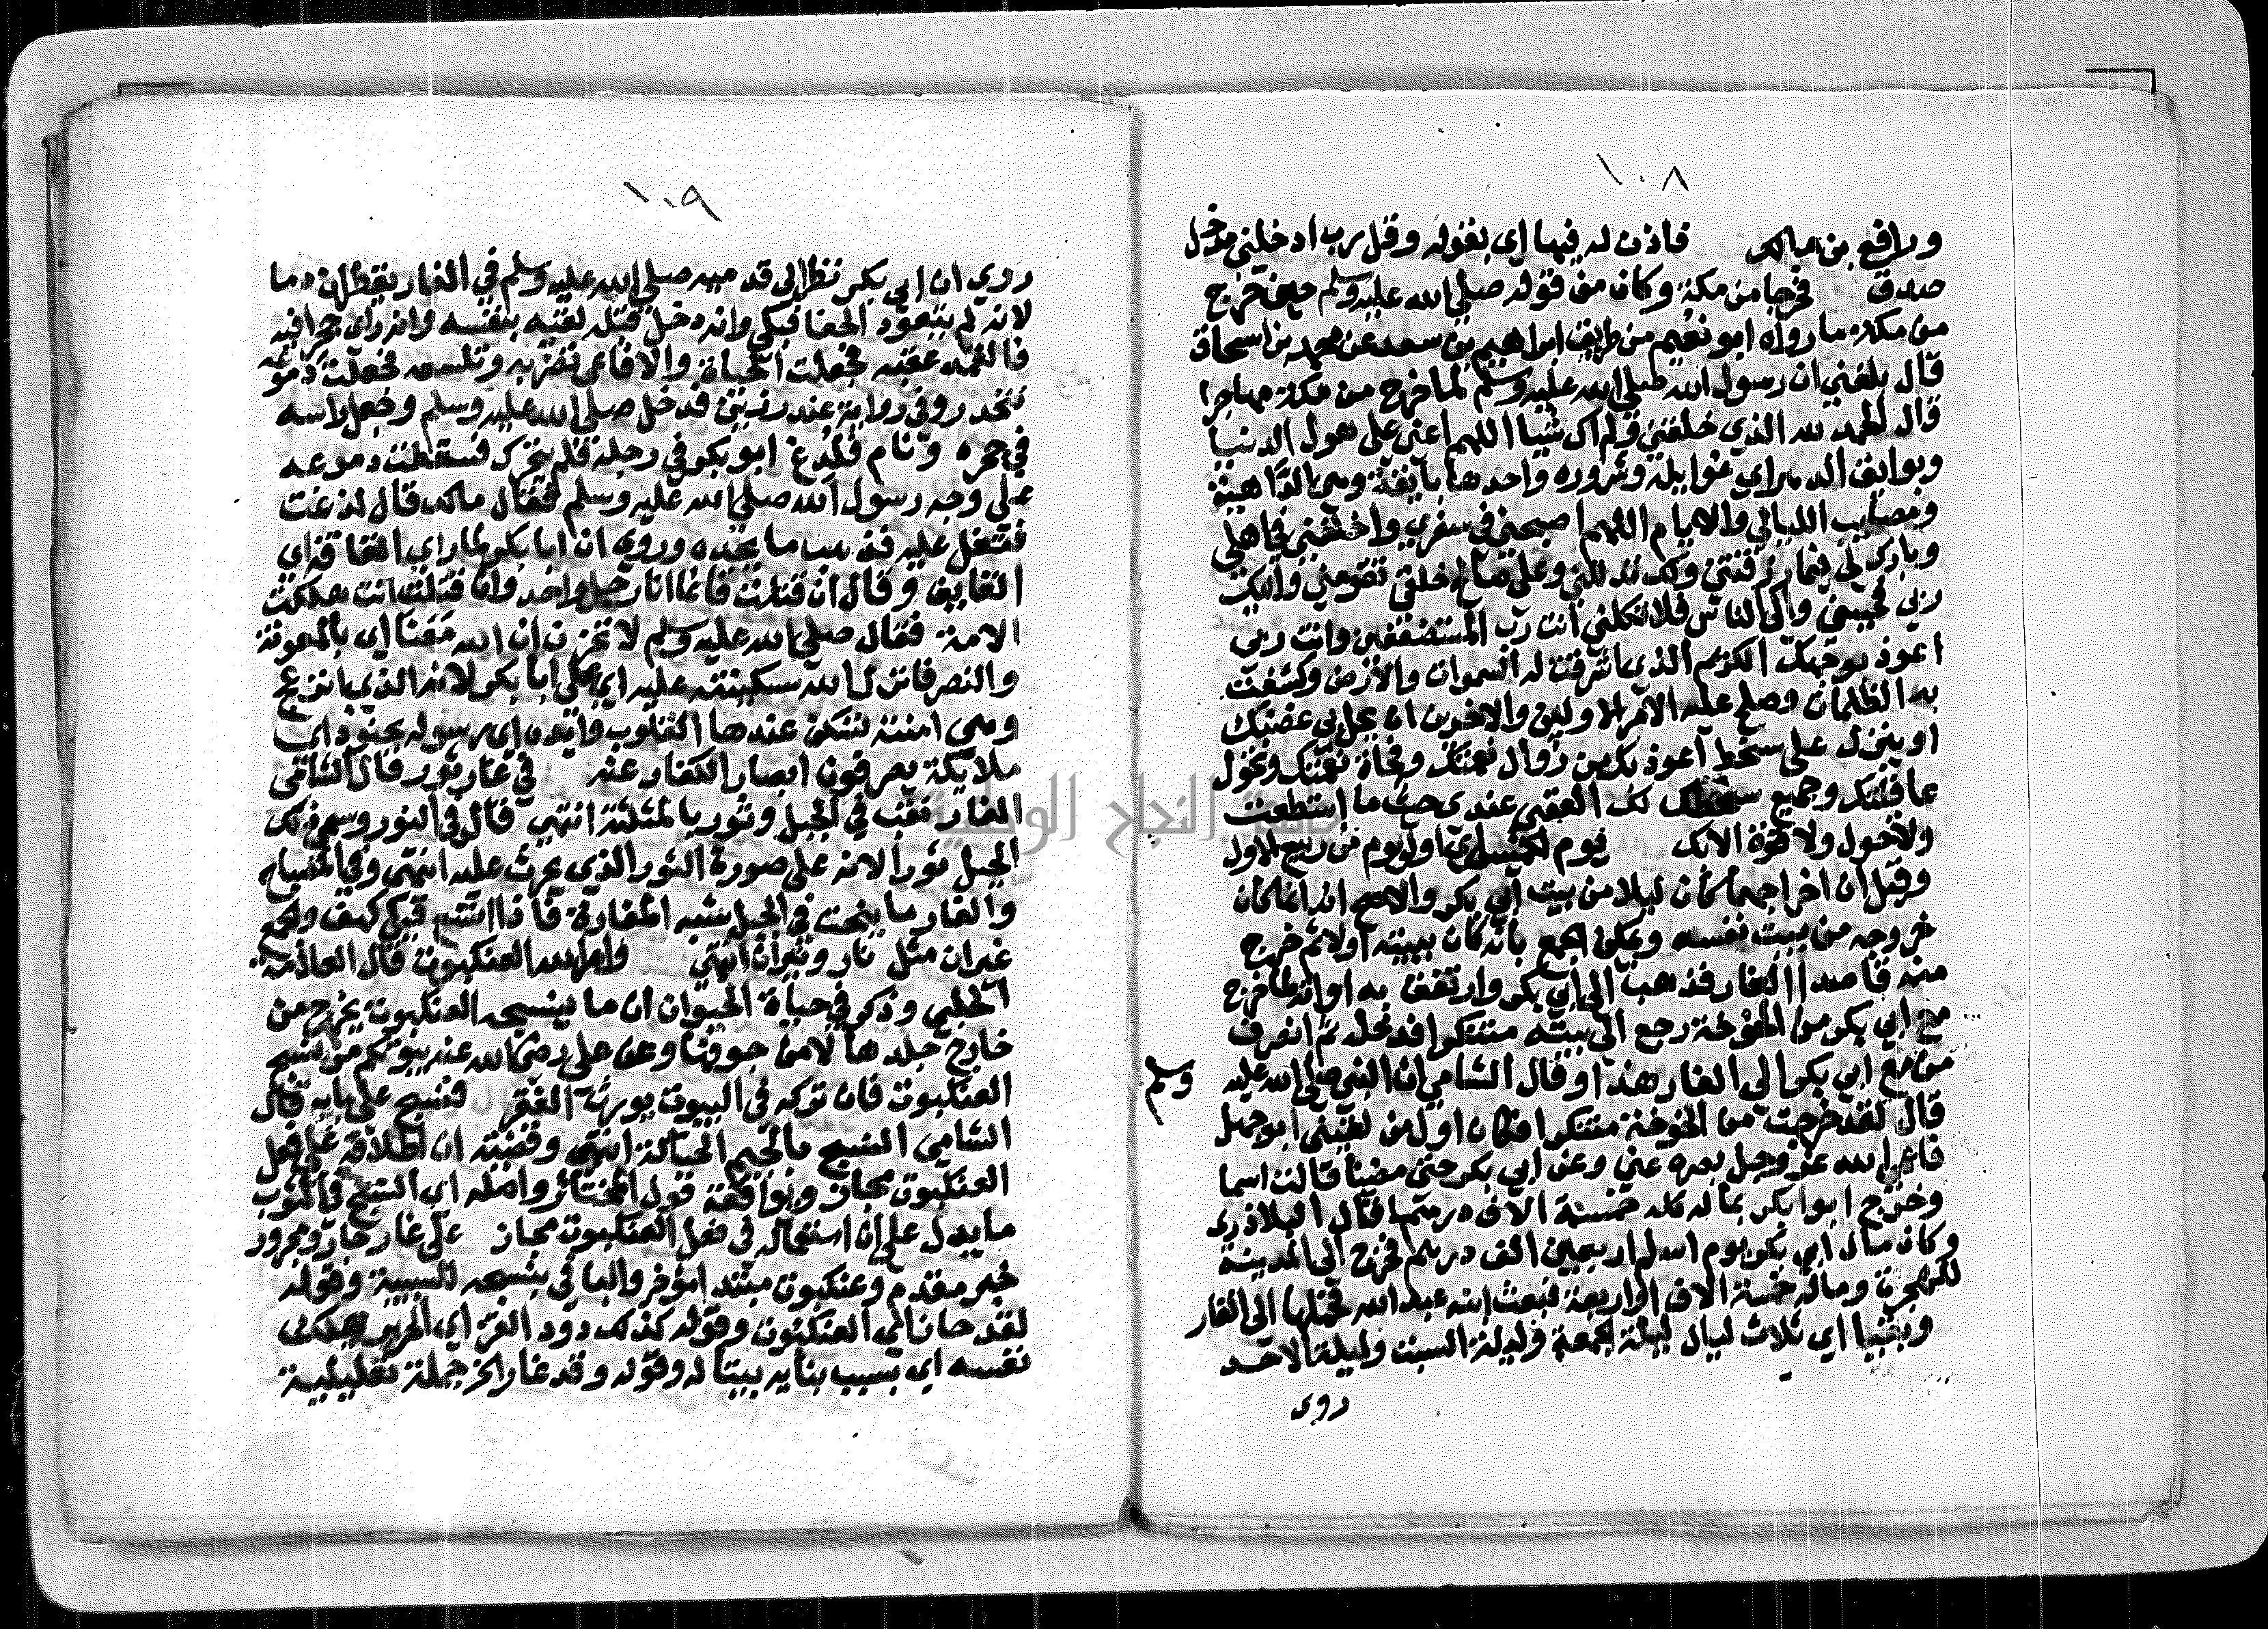 ١٠٨
ورافع بن مالك فاذن له فيها اي بقوله وقل رب ادخلني مدخل
صدق فخرجا من مكة وكان من قوله صلي الله عليه وسلم حين خرج
من مكة ما رواه ابو نعيم من طريق ابراهيم بن سعد عن محمد بن اسحاق
قال بلغني ان رسول الله صلي الله عليه وسلم لما خرج من مكة مهاجرا
قال الحمد لله الذي خلقني ولم اك شيا اللهم اعني على هول الدنيا
وبوايق الدهر اي غوايله وشروره واحدها بايقة وهي الداهية
ومصايب الليالي والايام اللهم اصحبني في سفري واخلفني في اهلي
وبارك لي فيما رزقتني ولك فذللني وعلى صالح خلقي فقومني واليك
ربي فحببني والى الناس فلا تكلني انت رب المستضعفين وانت ربي
اعوذ بوجهك الكريم الذي اشرقت له السموات والارض وكشفت
به الظلمات وصلح عليه الامر الاولين والاخرين ان يحل بي غضبك
او ينزل على سخط اعوذ بك من زوال نعمتك وفجاة نقمتك وتحول
عافيتك وجميع سخطك لك العقبى عندي حيث ما استطعت
ولا حول ولا قوة الا بك يوم الخميس اي اول يوم من ربيع الاول
وقيل ان اخراجهما كان ليلا من بيت ابي بكر والاصح انه انما كان
خروجه من بيت نفسه ويمكن الجمع بانه كان ببيته اولا ثم خرج
منه قاصدا الغار فذهب الى ابي بكر وارتفق به او انه لما خرج
مع ابي بكر من الخوخة رجع الى بيته متنكرا فدخله ثم انصرف
من مع ابي بكر الى الغار هذا وقال الشامي ان النبي صلى الله عليه
وسلم
قال لقد خرجت من الخوخة متنكرا فكان اول من لقيني ابو جهل
فاعمى الله عز وجل بصره عني وعن ابي بكر حتى مضينا قالت اسما
وخرج ابوا بكر بماله كله خمسة الاف درهم قال البلاذري
وكان مال ابي بكر يوم اسلم اربعين الف درهم فخرج الى المدينة
للهجرة وماله خمسة الاف او اربعة فبعث ابنه عبد الله فحملها الى الغار
وبثيا اي ثلاث ليال ليلة الجمعة وليلة السبت وليلة الاحد
روى
١٠٩
روي ان ابي بكر نظر الى قدميه صلي الله عليه وسلم في الغار يقطران دما
لانه لم يتعود الحفا فبكى وانه دخل قبله لقيه بنفسه وانه راى جحرا فيه
فالقمه عقبه فجعلت الحيات والافاعي تضربه وتلسعه فجعلت دموعه
تتحدر وفي رواية عند رزين فدخل صلى الله عليه وسلم وجعل راسه
في حجره ونام فلدغ ابو بكر في رجله فلم يتحرك فسقطت دموعه
على وجه رسول الله صلي الله عليه وسلم فقال مالك قال لدغت
فتفل عليه فذهب ما يجده وروي ان ابا بكر لما راي القافة اي
القايف وقال ان قتلت فانما انا رجل واحد وان قتلت انت هلكت
الامة فقال صلى الله عليه وسلم لا تحزن ان الله معنا اي بالمعونة
والنصر فانزل الله سكينته عليه اي على ابا بكر لانه الذي انزعج
وهي امنة تسكن عندها القلوب وايده اي رسوله بجنود اي
ملايكة يصرفون ابصار الكفار عنه في غار ثور قال الشامي
الغار نقب في الجبل وثور بالمثلثة انتهي قال في النور وسمي ذلك
الجبل ثورا لانه على صورة الثور الذي يحرث عليه انتهى وفي المصباح
والغار ما ينحت في الجبل شبه المغارة فاذا اتسع قيل كهف والجمع
غيران مثل نار ونيران انتهي والهم الله العنكبوت قال العلامة
الحلبي وذكر في حياة الحيوان ان ما ينسجه العنكبوت يخرج من
خارج جلدها لا من جوفها وعن علي رضي الله عنه بيوتكم من نسج
العنكبوت فان تركه في البيوت يورث الفقر فنسج على بابه قال
الشامي النسج بالجيم الحياكة انتهى وقضيته ان اطلاقه على فعل
العنكبوت مجاز ويوافقه قول المختار واصله اي النسج في الثوب
ما يدل على ان استعماله في فعل العنكبوت مجاز على غار جار ومجرور
خبر مقدم وعنكبوت مبتدا مؤخر والبا في بنسجه للسببية وقوله
لقد حانا اي العنكبوت وقوله كذلك دود القز اي الحرير يهلك
نفسه اي بسبب بنايه بيتا له وقوله وقد غار الخ جملة تعليلية